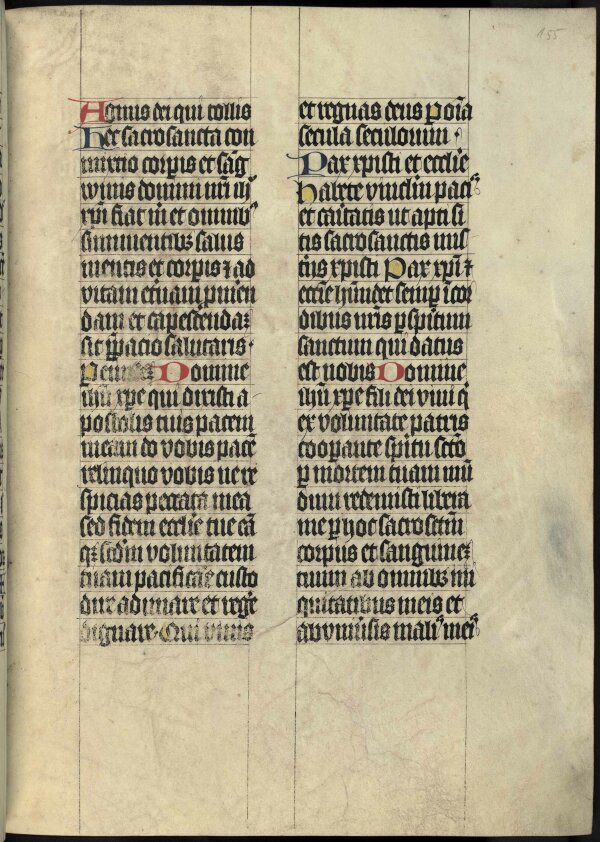 155
Agnus dei qui tollis
Hec sacrosancta com
mixtio corꝑis et sāg
winis domini nr̄i ih̓
xp̄i fiat m̄ et omnibꝰ
sumentibꝫ salus
mentis et corꝑis ⁊ ad
vitam et̄nam ꝓmeren
dam et capescendaꝫ
sit p̄ꝑacio salutaris·
Domine
ihū xp̄e qui dixisti a
postolis tuis pacem
meam do vobis pacē
relinquo vobis ne re
spicias peccata mea
sed fidem ecclīe tue eā
qꝫ scd̄m voluntatem
tuam pacificare custo
dire adunare et rege̓
dignare· Qui viuis
et regnas deus ꝑ oīa
secula seculorum·
Pax xp̄isti et ecclīe
habete vinclm̄ paciꝰ
et caritatis ut apti si
tis sacrosanctis mis
t̓iis xp̄isti Pax xp̄i ⁊
ecclīe hūndet semꝑ ī cor
dibus vr̄is ꝑ spiritum
sanctum qui datus
est nobis Domine
ihū xp̄e fili dei viui q̓
ex voluntate patris
coopante spiritu sctō
ꝑ mortem tuam mū
dum redemisti libera
me ꝑ hoc sacrosctm̄
corpus et sanguineꝫ
tuum ab omnibꝫ ini
quitatibus meis et
ab vniu̓sis malis meiꝰ